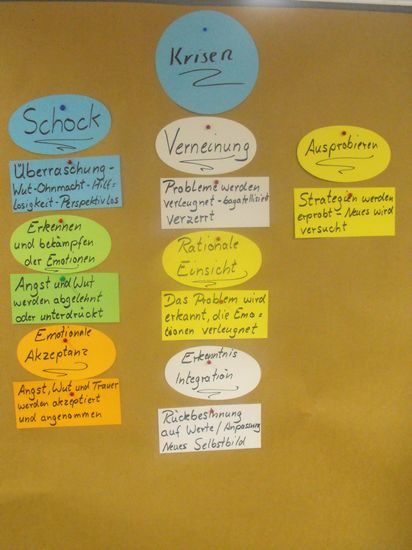 Krisen
Schock
Überraschung-
Wut-Ohnmacht-Hilf=
losigkeit-Perspektivlos
Erkennen
und bekämpfen
der Emotionen
Angst und Wut
werden abgelehnt
oder unterdrückt
Emotionale
Akzeptanz
Angst, Wut und Trauer
werden akzeptiert
und angenommen
Verneinung
Probleme werden
verleugnet-bagatellisiert
verzerrt
Rationale
Einsicht
Das Problem wird
erkannt, die Emo=
tionen verleugnet
Erkenntnis
Integration
Rückbesinnung
auf Werte/Anpassung
Neues Selbstbild
Ausprobieren
Strategien werden
erprobt-Neues wird
versucht